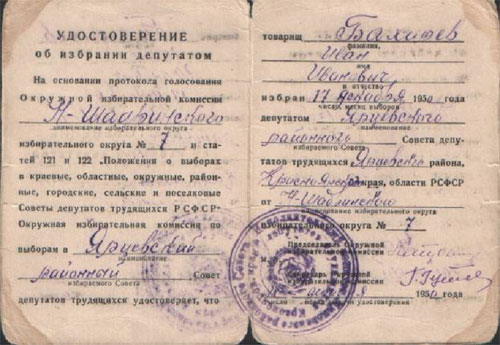 УДОСТОВЕРЕНИЕ
об избрании депутатом
На основании протокола голосования
Окружной избирательной комиссии
Н-Шадринского
наименование избирательного округа
избирательного округа № 7 и ста-
тей 121 и 122 „Положения о выборах
в краевые, областные, окружные, район-
ные, городские, сельские и поселковые
Советы депутатов трудящихся РСФСР"
Окружная избирательная комиссия по
выборам в Ярцевский
наименование
районный Совет
избираемого Совета
депутатов трудящихся удостоверяет, что
товарищ
фамилия,
Иван
имя
Иванович,
и отчество
избран 17 декабря 1950 года
число, месяц выборов
депутатом Ярцевского
районного Совета депу-
избираемого Совета
татов трудящихся Ярцевского района,
Красноярского края, области РСФСР
от Н
наименование избирательного округа
избирательного округа № 7
Председатель Окружной
избирательной комиссии
Секретарь Окружной
избирательной комиссии
1950 г.
число месяц выдачи удостоверения